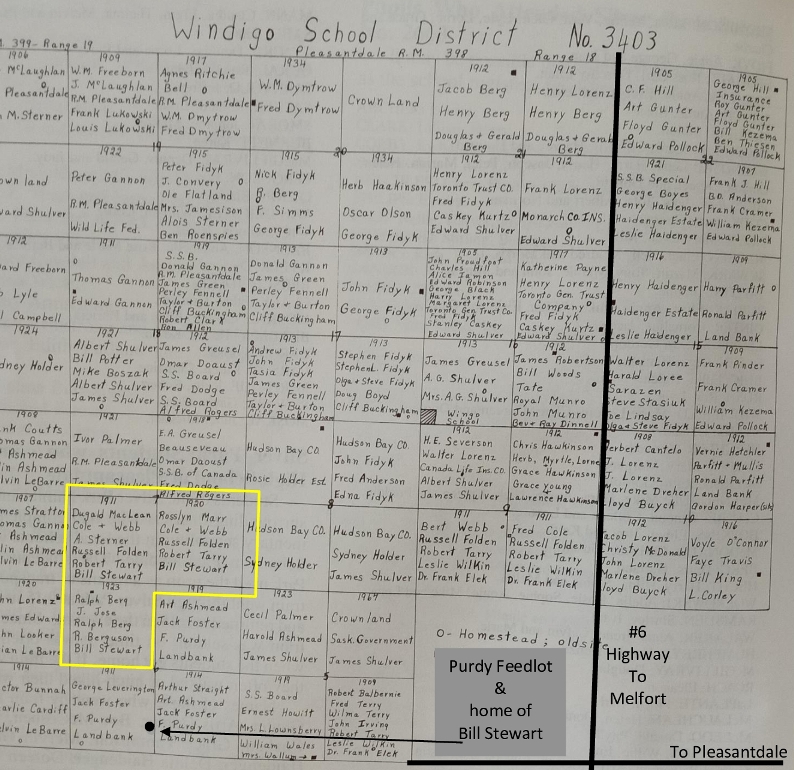 Windigo School District No. 3403
M. 399- Range 19
Pleasantdale R.M. 398
Range 18
1906
McLaughlan
Pleasantdale
M. Sterner
1909
W.M. Freeborn
J. McLaughlan
R.M. Pleasantdale
Frank Lukowski
Louis Lukowski
1917
Agnes Ritchie
Bell
R.M. Pleasantdale
W.M. Dmytrow
Fred Dmytrow
1934
W.M. Dymtrow
Fred Dymtrow
Crown Land
1912
Jacob Berg
Henry Berg
Douglas + Gerald
Berg
1912
Henry Lorenz
Henry Berg
Douglas + Gerald
Berg
1905
C.F. Hill
Art Gunter
Floyd Gunter
Edward Pollock
1905
George Hill
Insurance
Roy Gunter
Art Gunter
Floyd Gunter
Bill Kezema
Ben Thiesen
Edward Pollock
own land
ward Shulver
1922
Peter Gannon
R.M. Pleasantdale
Wild Life Fed.
19
1915
Peter Fidyk
J. Convery
Ole Flatland
Mrs. Jamesison
Alois Sternor
Ben Roenspies
1915
Nick Fidyk
B. Berg
F. Simms
George Fidyk
20
1934
Herb Haakinson
Oscar Olson
George Fidyk
1912
Henry Lorenz
Toronto Trust CO.
Fred Fidyk
Caskey Kurtz
Edward Shulver
21
1912
Frank Lorenz
Monarch CO. INS.
Edward Shulver
1921
S.S.B. Special
George Boyes
Henry Haidenger
Haidenger Estate
Leslie Haidenger
22
1907
Frank J. Hill
B.O. Anderson
Frank Cramer
William Kezema
Edward Pollock
1912
ard Freeborn
Lyle
Campbell
1911
Thomas Gannon
Edward Gannon
1919
S.S.B.
Donald Gannon
R.M. Pleasantdale
James Green
Perley Fennell
Taylor + Burton
Cliff Buckingham
Robert Clark
Allen
1913
Donald Gannon
James Green
Perley Fennell
Taylor + Burton
Cliff Buckingham
1913
John Fidyk
George Fidyk
1905
John Proudfoot
Charles Hill
Alice Jamon
Edward Robinson
George Black
Harry Lorenz
Margaret Lorenz
Toronto Gen Trust CO
Fred Fidyk
Stanley Caskey
Edward Shulver
1917
Katherine Payne
Henry Lorenz
Toronto Gen. Trust
Company
Fred Fidyk
Caskey Kurtz
Edward Shulver
1916
Henry Haidenger
Haidenger Estate
Leslie Haidenger
1909
Harry Parfitt
Ronald Parfitt
Land Bank
1924
dney Holder
1921
Albert Shulver
Bill Potter
Mike Boszak
Albert Shulver
James Shulver
18
1912
James Greusel
Omar Daoust
S.S. Board
Fred Dodge
S.S. Board
Alfred Rogers
1913
Andrew Fidyk
John Fidyk
Tasia Fidyk
James Green
Perley Fennell
Taylor + Burton
Cliff Buckingham
17
1913
Stephen Fidyk
Stephen L. Fidyk
Olga + Steve Fidyk
Doug Boyd
Cliff Buckingham
1913
James Greusel
A.G. Shulver
Mrs. A.G. Shulver
Wingo
School
16
1912
James Robertson
Bill Woods
Tate
Royal Munro
John Munro
Bev + Ray Dinnell
Walter Lorenz
Harald Loree
Sarazen
Steve Stasiuk
Joe Lindsay
Olga + Steve Fidyk
15
1909
Frank Pinder
Frank Cramer
William Kezema
Edward Pollock
1908
nk Coutts
omas Gannon
Ashmead
in Ashmead
lvin LeBarre
1921
Ivor Palmer
R.M. Pleasantdale
James Shulver
1918
E.A. Greusel
Beauseveau
Omar Daoust
S.S.B. of Canada
Fred Dodge
Alfred Rogers
Hudson Bay CO.
Rosie Holder Est.
Hudson Bay CO.
John Fidyk
Fred Anderson
Edna Fidyk
1912
H.E. Severson
Walter Lorenz
Canada Life Ins. CO.
Albert Shulver
James Shulver
1912
Chris Hawkinson
Herb, Myrtle, Lorne
Grace Hawkinson
Grace Young
Lawrence Hawkinson
1908
Herbert Cantelo
J. Lorenz
J. Lorenz
Marlene Dreher
Lloyd Buyck
1912
Vernie Hetchler
Parfitt + Mullis
Ronald Parfitt
Land Bank
Gordon Harper
1907
mes Stratton
Thomas Gannon
Ashmead
lin Ashmead
lvin Le Barre
1911
Dugald MacLean
Cole + Webb
A. Sterner
Russell Folden
Robert Tarry
Bill Stewart
1920
Rosslyn Marr
Cole + Webb
Russell Folden
Robert Tarry
Bill Stewart
Hudson Bay CO.
Sydney Holder
8
Hudson Bay CO.
Sydney Holder
James Shulver
1911
Bert Webb
Russell Folden
Robert Tarry
Leslie Wilkin
Dr. Frank Elek
9
1911
Fred Cole
Russell Folden
Robert Tarry
Leslie Wilkin
Dr. Frank Elek
1912
Jacob Lorenz
Christy McDonald
John Lorenz
Marlene Dreher
Lloyd Buyck
10
1916
Voyle O'Connor
Faye Travis
Bill King
L. Corley
1920
hn Lorenz
mes Edward
hn Looker
ian Le Barre
1923
Ralph Berg
J. Jose
Ralph Berg
R. Berguson
Bill Stewart
1919
Art Ashmead
Jack Foster
F. Purdy
Landbank
1923
Cecil Palmer
Harold Ashmead
James Shulver
1967
Crown land
Sask. Government
James Shulver
O- Homestead ; oldsite
1914
ctor Bunnah
arlie Cardiff
lvin LeBarre
1911
George Leverington
Jack Foster
F. Purdy
Landbank
6
Arthur Straight
Art Ashmead
Jack Foster
F. Purdy
Landbank
1914
S.S. Board
Ernest Howitt
Mrs. L. Lownsberry
William Wales
Mrs. Wallum
5
1909
Robert Balbernie
Fred Terry
Wilma Terry
John Irving
Robert Tarry
Leslie Wilkin
Dr. Frank Elek
Purdy Feedlot
&
home of
Bill Stewart
#6
Highway
To
Melfort
To Pleasantdale